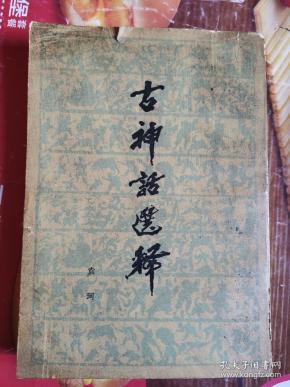 古神話選釋
袁珂
孔夫子旧书网